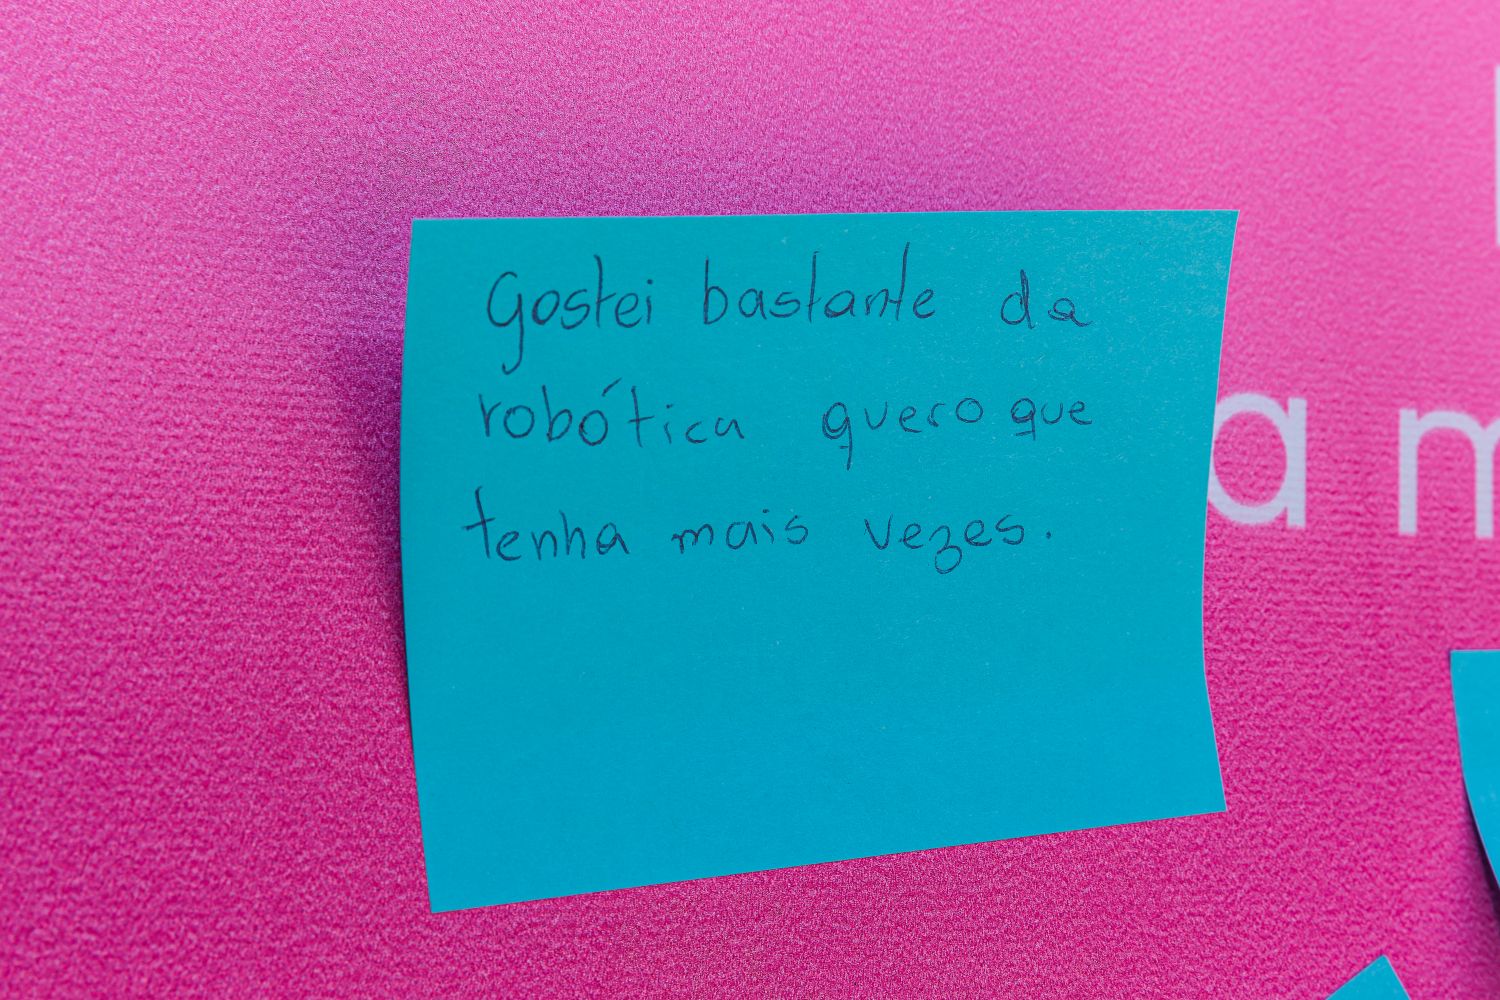 Gostei bastante da
robótica quero que
tenha mais vezes.
a m